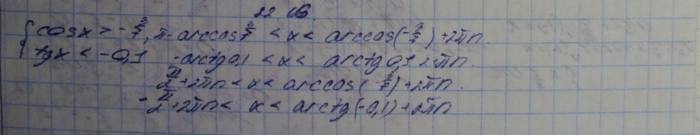 22 (б).
{ cosx > -2/7, π-arccos 2/7 < x < arccos(-2/7) + 2πn
tgx < -0,1 -arctg0,1 < x < arctg0,1 2πn.
π/2 + 2πn < x < arccos(-2/7) + 2πn
-π/2 + 2πn < x < arctg(-0,1) + 2πn